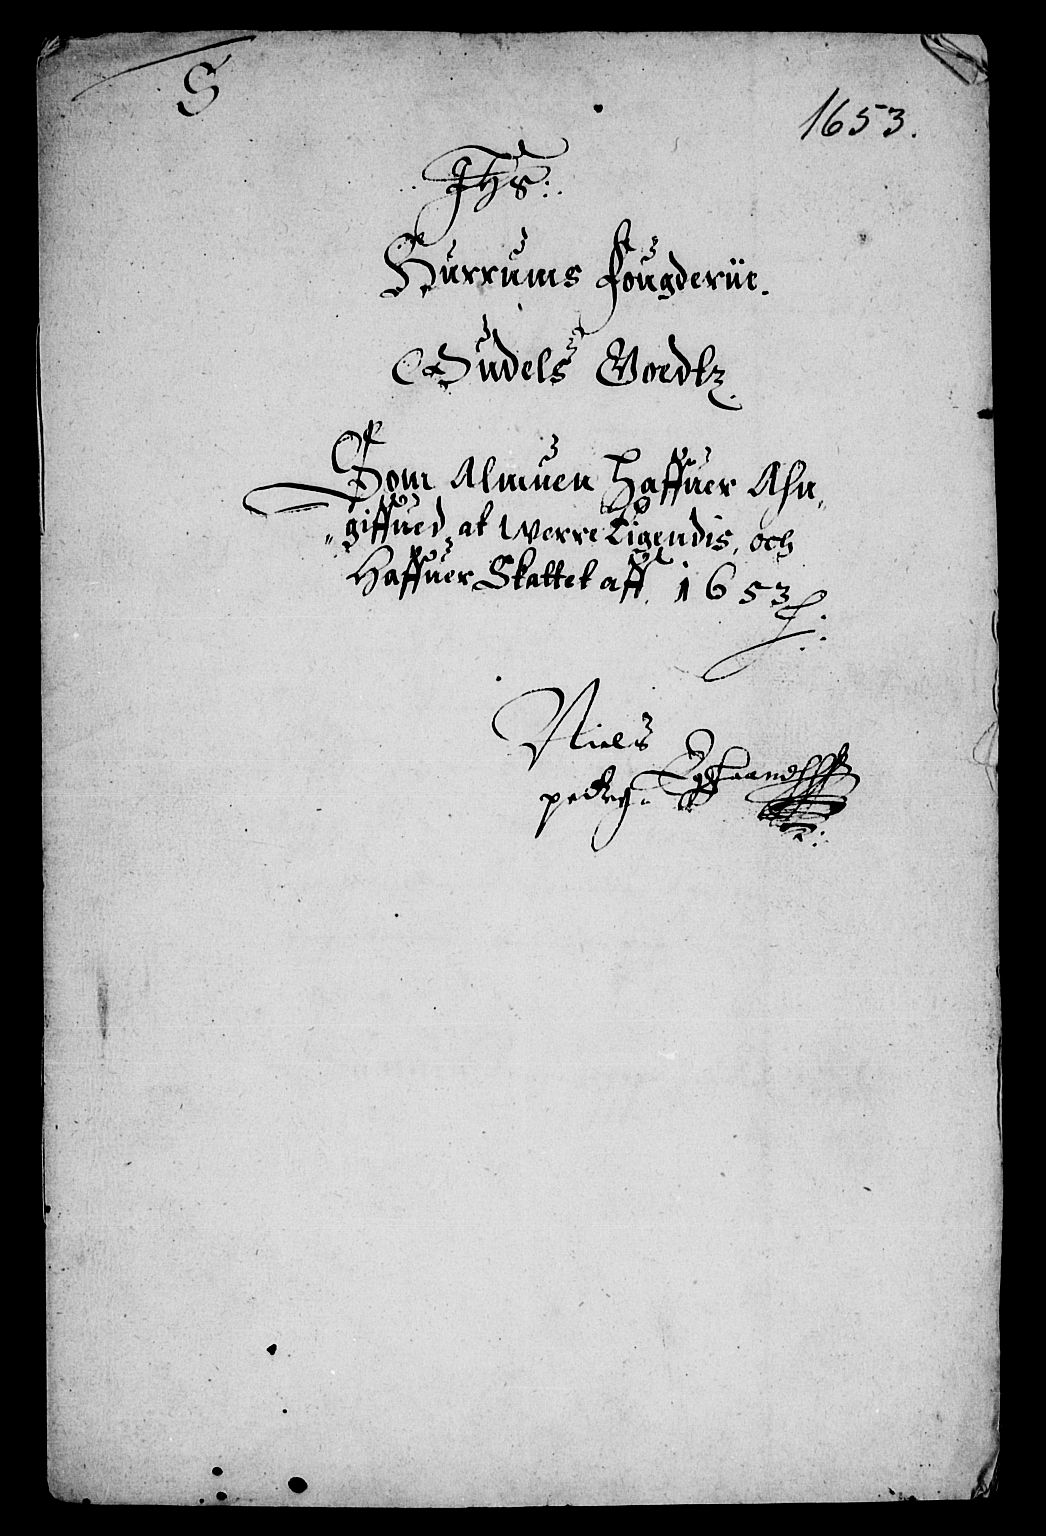 S
1653.
Jhs:
Hurrums Fougderiie.
Oudels Goedtz
Som Almuen Haffuer Ahn„
„giffued at Werre Eigendis, och
Haffuer Skattet aff. 1653
Niels
peders: